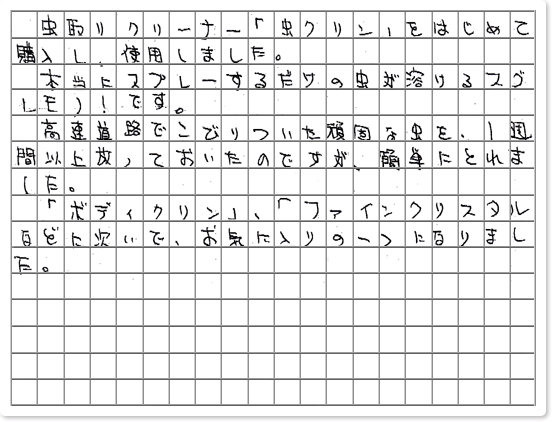 虫取りクリーナー「虫クリン」をはじめて
購入し、使用しました。
本当にスプレーするだけの虫が溶けるスグ
レモノ！です。
高速道路でこびりついた頑固な虫を、1週
間以上放っておいたのですが、簡単にとれま
した。
「ボディクリン」、「ファインクリスタル
などに次いで、お気に入りの一つになりまし
た。